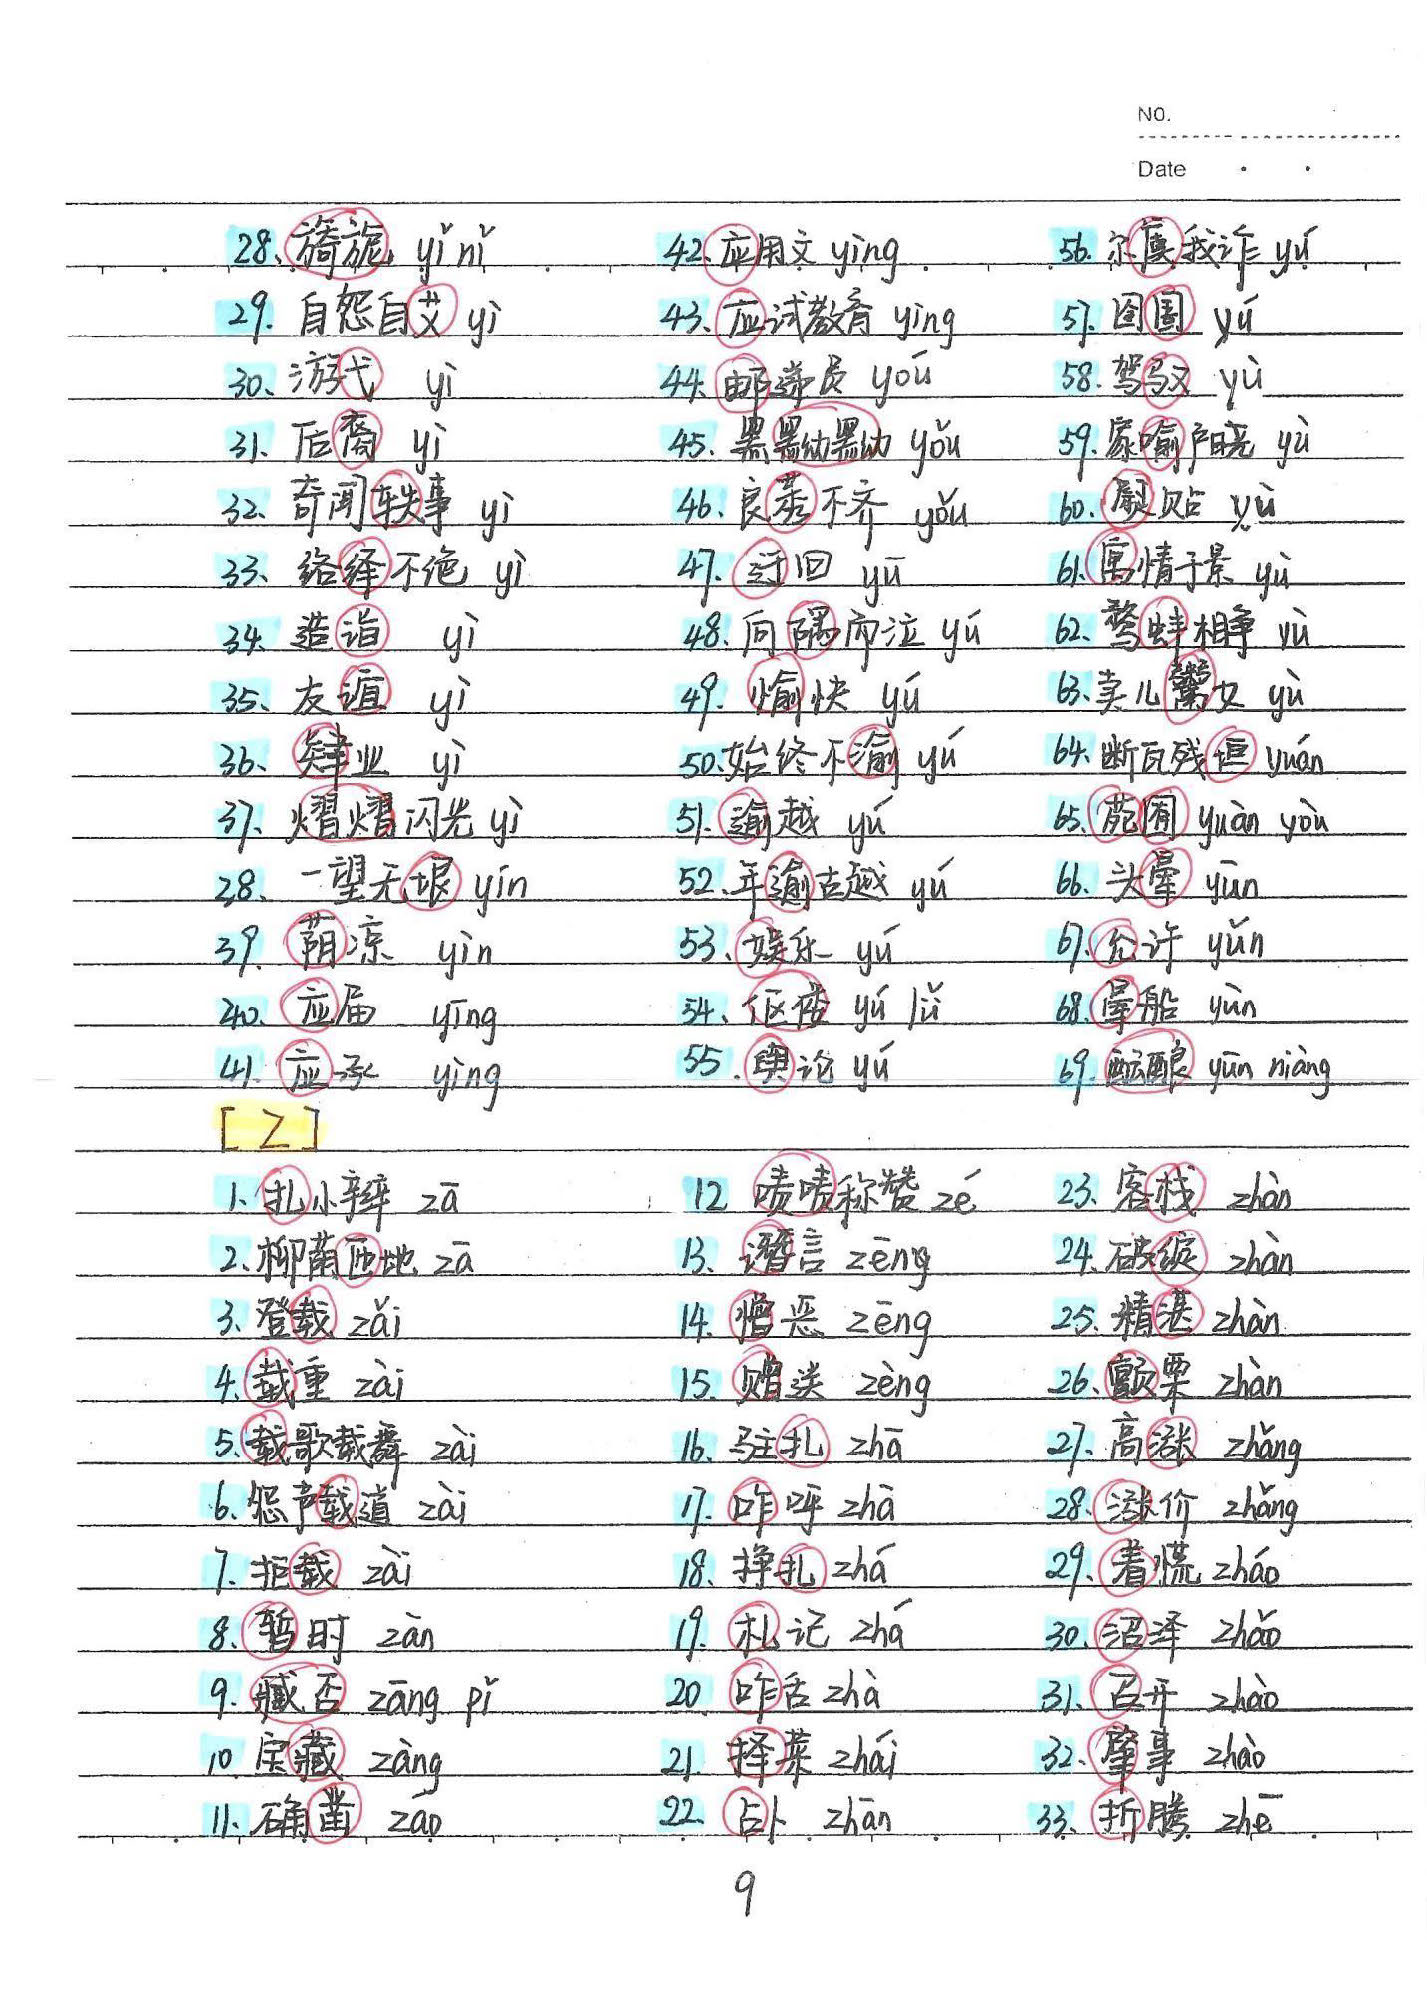 NO.
Date
28、旖旎 yǐ nǐ
29. 自怨自艾 yì
30、游弋 yì
31、后裔 yì
32、奇闻轶事 yì
33、络绎不绝 yì
34、造诣 yì
35、友谊 yì
36、肄业 yì
37、熠熠闪光 yì
28、一望无垠 yín
39、荫凉 yìn
40、应届 yīng
41、应承 yìng
42、应用文 yìng
43、应试教育 yìng
44、邮递员 yóu
45、黑黝黝 yǒu
46、良莠不齐 yǒu
47、迂回 yū
48、向隅而泣 yú
49、愉快 yú
50、始终不渝 yú
51、逾越 yú
52、年逾古越 yú
53、娱乐 yú
54、伛偻 yú lǚ
55、舆论 yú
56、尔虞我诈 yú
57、囹圄 yú
58、驾驭 yù
59、家喻户晓 yù
60、熨贴 yù
61、寓情于景 yù
62、鹬蚌相争 yù
63、卖儿鬻女 yù
64、断瓦残垣 yuán
65、苑囿 yuàn yòu
66、头晕 yūn
67、允许 yǔn
68、晕船 yùn
69、酝酿 yūn niàng
[Z]
1、扎小辫 zā
2、柳蔺匝地 zā
3、登载 zǎi
4、载重 zài
5、载歌载舞 zài
6、怨声载道 zài
7、拒载 zài
8、暂时 zàn
9、臧否 zāng pǐ
10 宝藏 zàng
11、确凿 záo
12 啧啧称赞 zé
13、谮言 zēng
14、憎恶 zēng
15、赠送 zèng
16、驻扎 zhā
17、咋呼 zhā
18、挣扎 zhá
19、札记 zhá
20 咋舌 zhà
21、择菜 zhái
22 占卜 zhān
23、客栈 zhàn
24、破绽 zhàn
25、精湛 zhàn
26、颤栗 zhàn
27、高涨 zhǎng
28、涨价 zhǎng
29、着慌 zháo
30、沼泽 zhǎo
31、召开 zhào
32、肇事 zhào
33、折腾 zhē
9